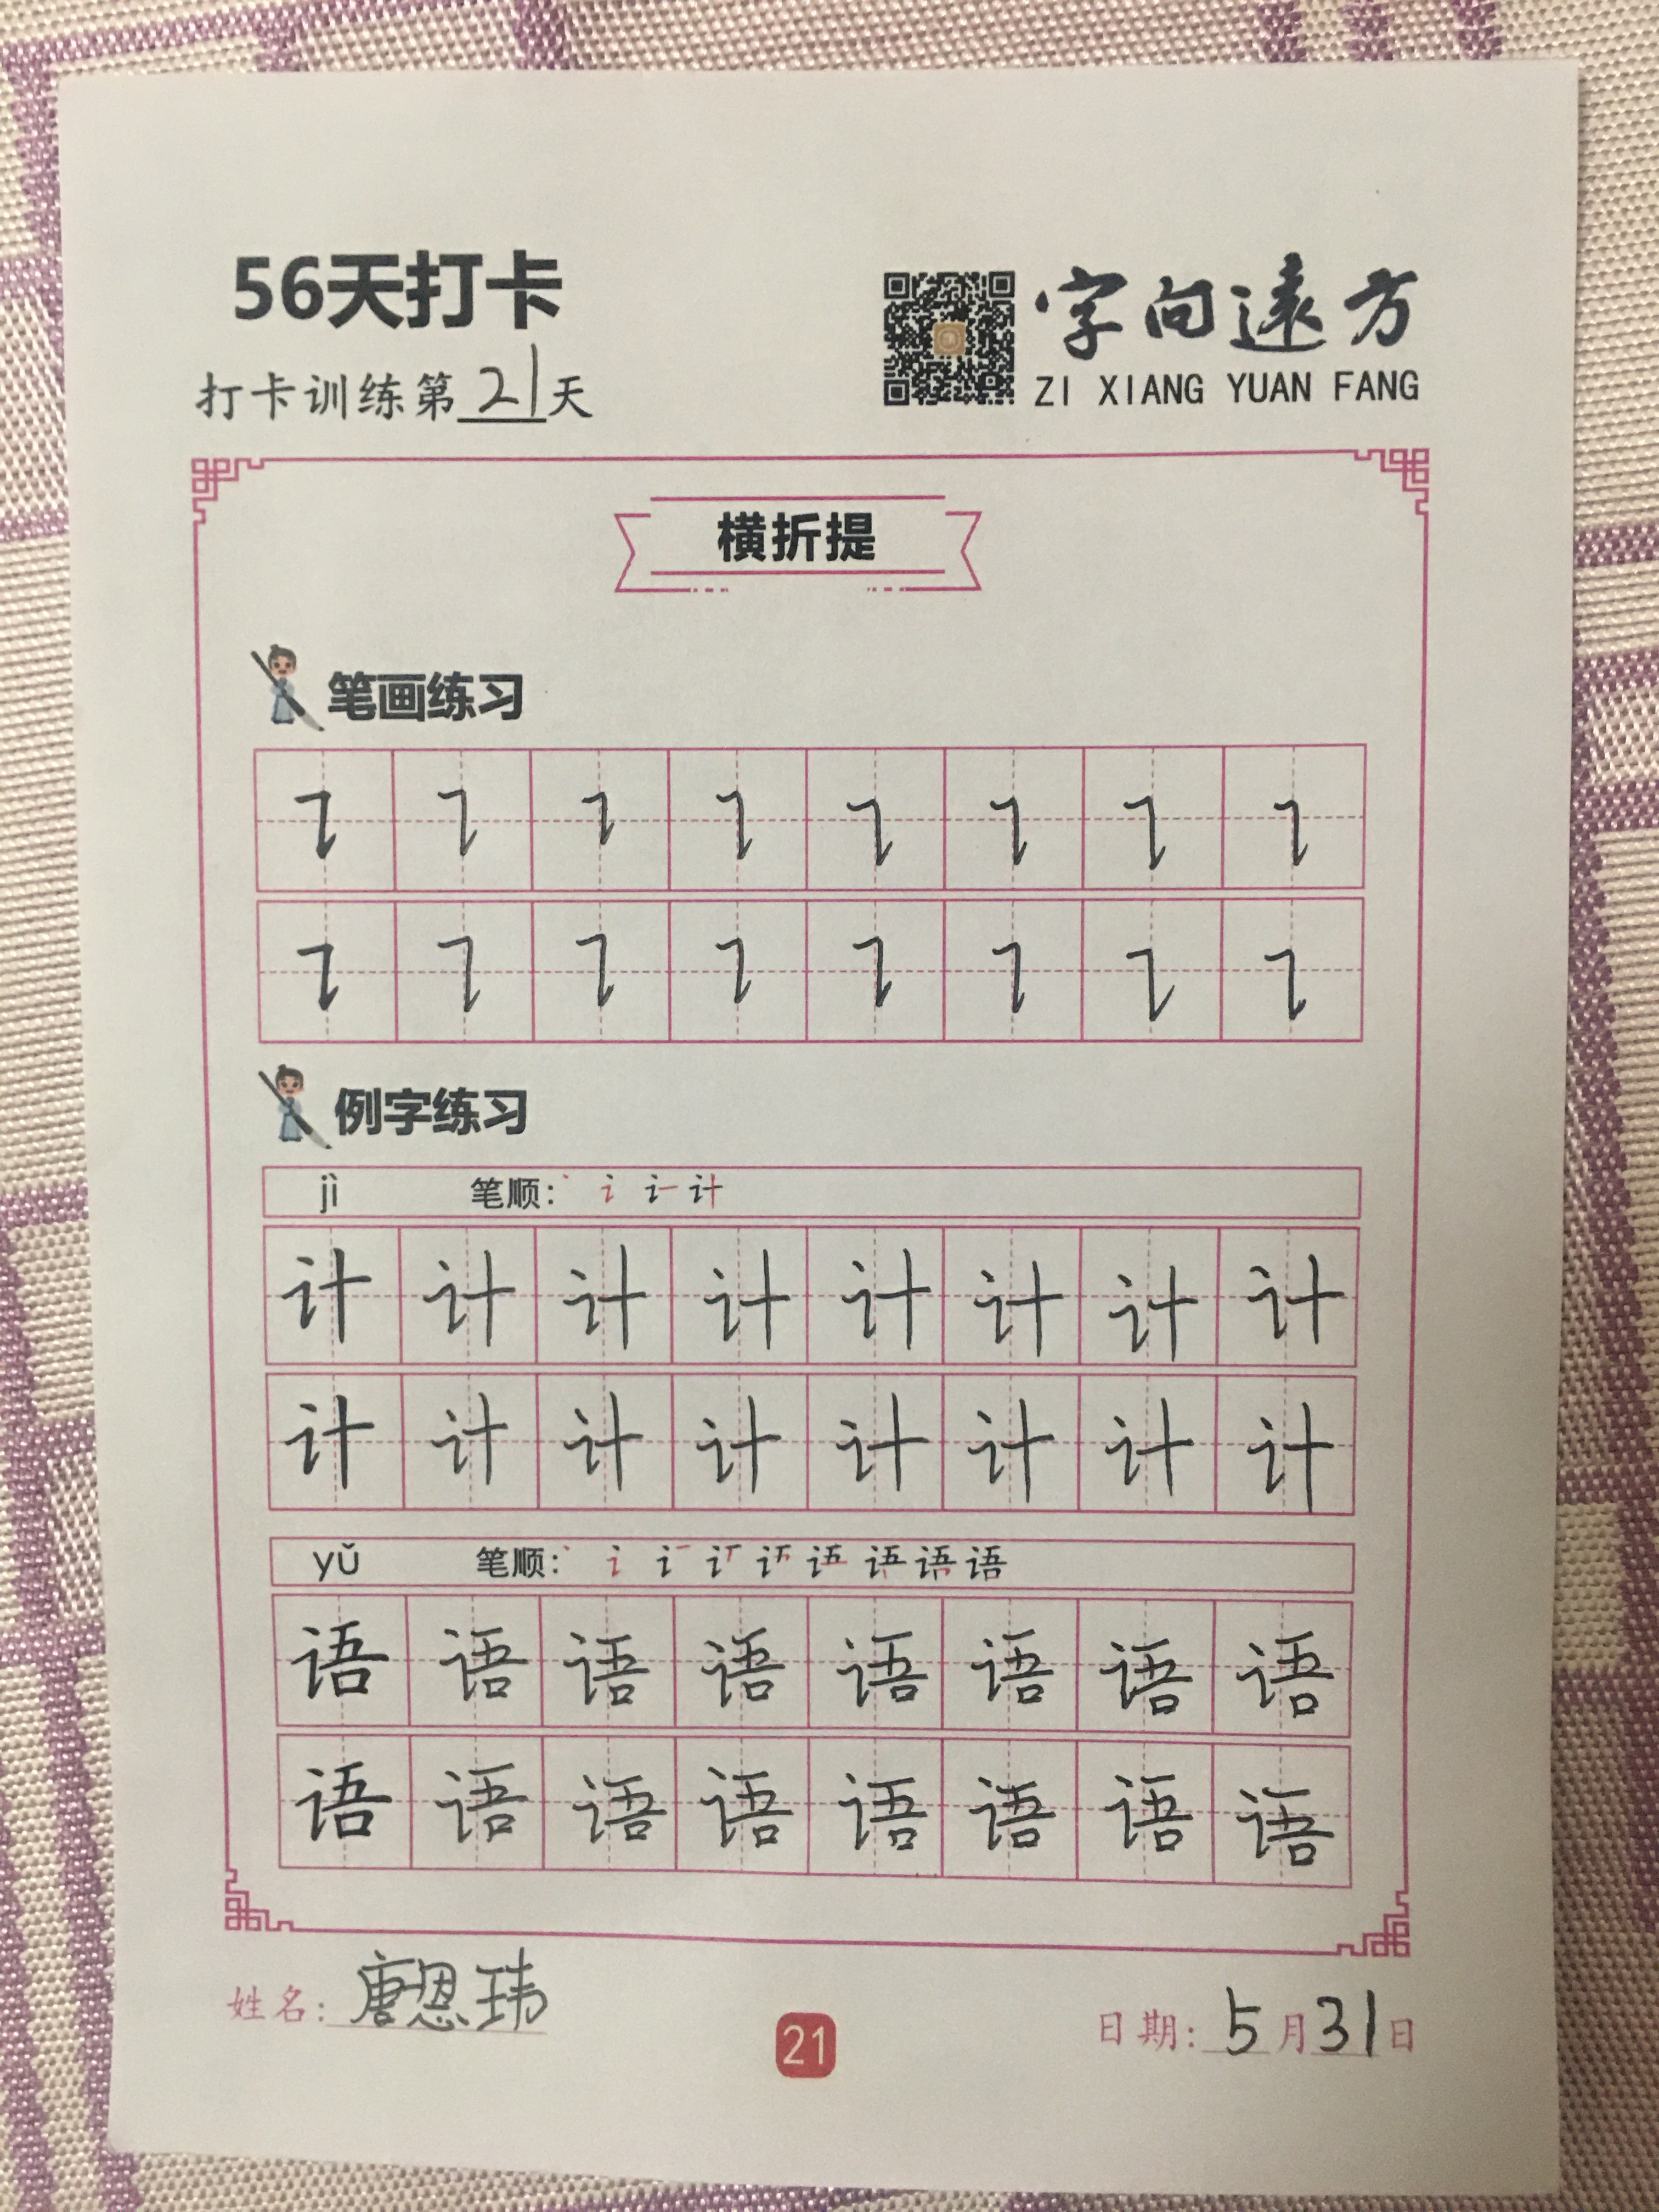 56天打卡
打卡训练第21天
字向遠方
ZI XIANG YUAN FANG
横折提
笔画练习
㇊ ㇊ ㇊ ㇊ ㇊ ㇊ ㇊ ㇊
㇊ ㇊ ㇊ ㇊ ㇊ ㇊ ㇊ ㇊
例字练习
jì 笔顺：
计 计 计 计 计 计 计 计
计 计 计 计 计 计 计 计
yǔ 笔顺：
语 语 语 语 语 语 语 语
语 语 语 语 语 语 语 语
姓名：唐恩玮
21
日期：5月31日